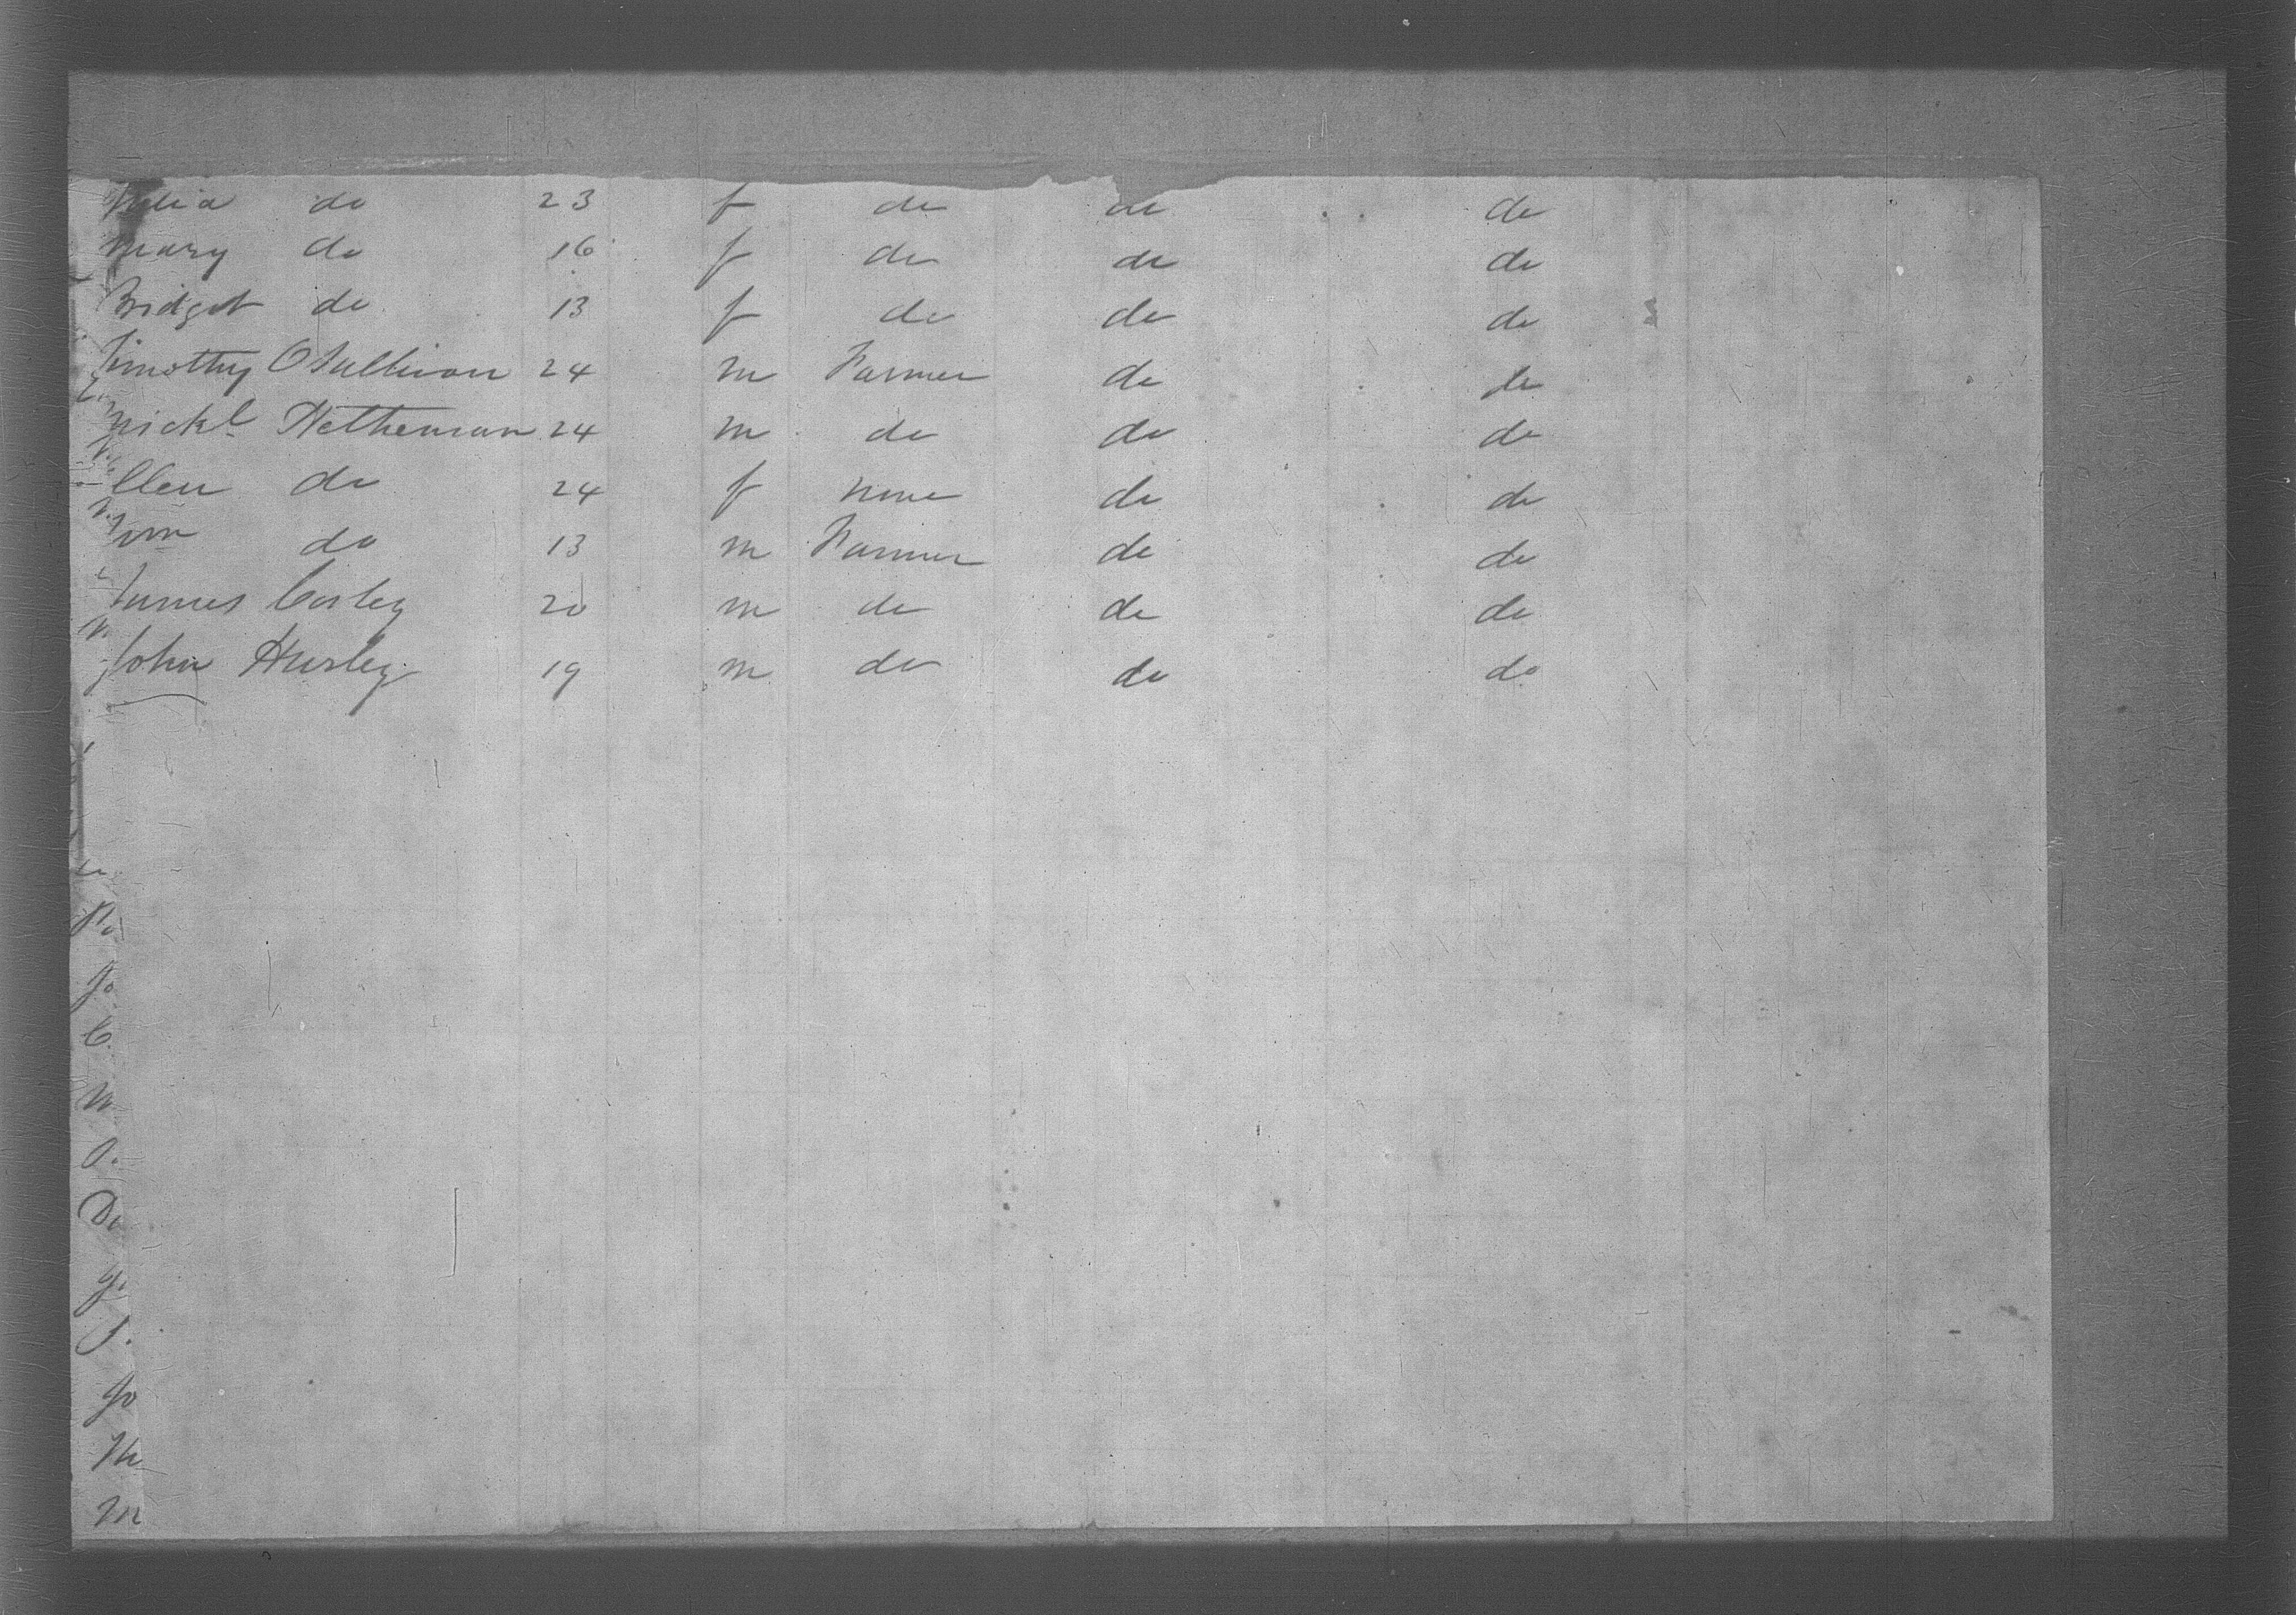 Julia do 23 f do do do
Mary do 16 f do do do
Bridget do 13 f do do do
Timothy O Sullivan 24 m Farmer do do
Mickl Hetherman 24 m do do do
Ellen do 24 f none do do
do 13 m Farmer do do
James Corley 20 m do do do
John Hurley 19 m do do do
Pa
Jo
C
M
O
Da
J
Jo
Th
M